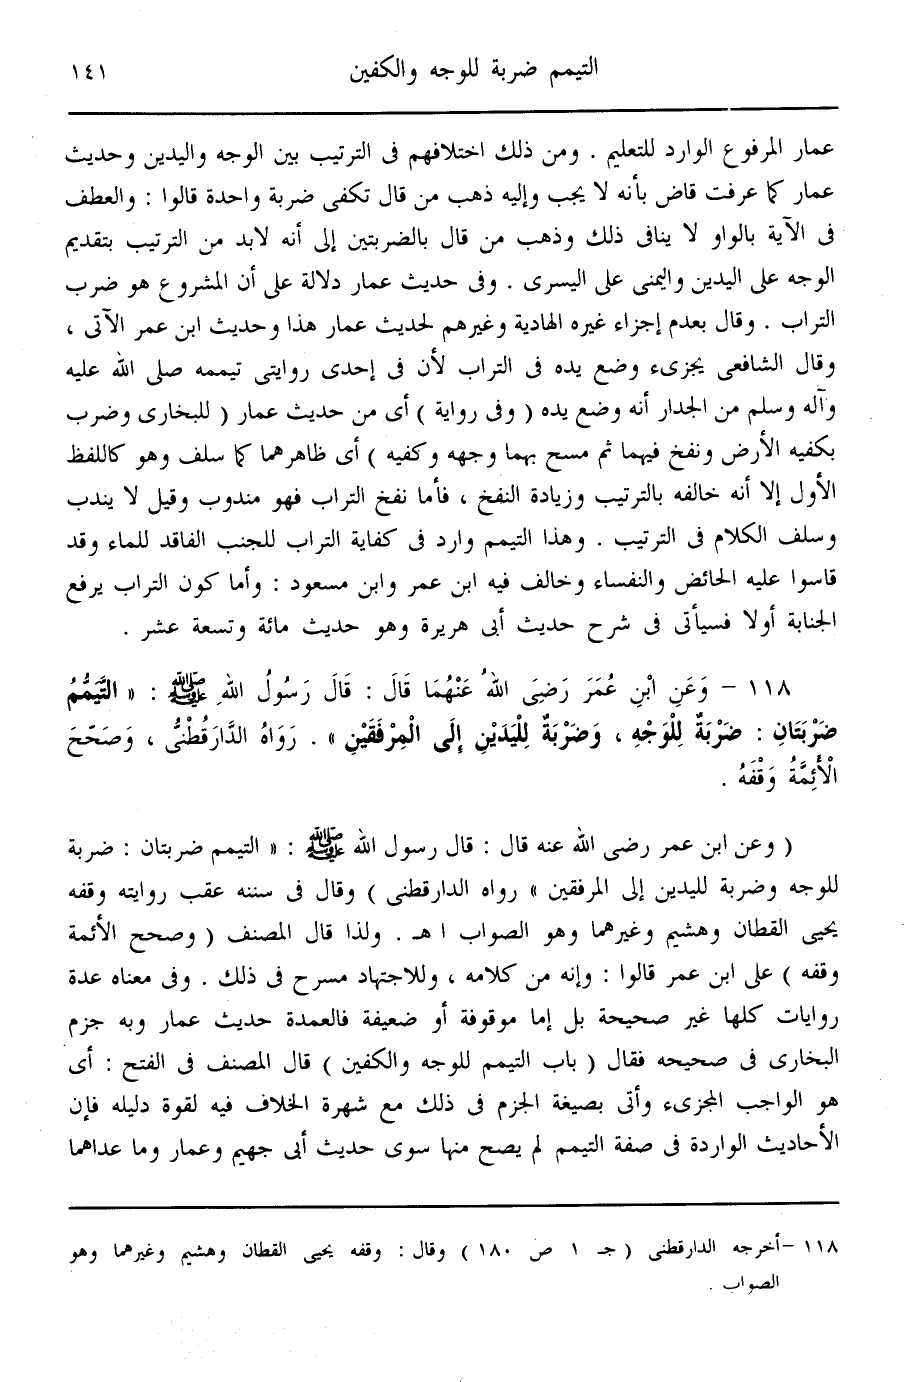 التيمم ضربة للوجه والكفين ١٤١
عمار المرفوع الوارد للتعليم . ومن ذلك اختلافهم فى الترتيب بين الوجه واليدين وحديث
عمار كما عرفت قاض بأنه لا يجب وإليه ذهب من قال تكفى ضربة واحدة قالوا : والعطف
فى الآية بالواو لا ينافى ذلك وذهب من قال بالضربتين إلى أنه لابد من الترتيب بتقديم
الوجه على اليدين واليمنى على اليسرى . وفى حديث عمار دلالة على أن المشروع هو ضرب
التراب . وقال بعدم إجزاء غيره الهادية وغيرهم لحديث عمار هذا وحديث ابن عمر الآتى ،
وقال الشافعى يجزىء وضع يده فى التراب لأن فى إحدى روايتى تيممه صلى الله عليه
وآله وسلم من الجدار أنه وضع يده ( وفى رواية ) أى من حديث عمار ( للبخارى وضرب
بكفيه الأرض ونفخ فيهما ثم مسح بهما وجهه وكفيه ) أى ظاهرهما كما سلف وهو كاللفظ
الأول إلا أنه خالفه بالترتيب وزيادة النفخ ، فأما نفخ التراب فهو مندوب وقيل لا يندب
وسلف الكلام فى الترتيب . وهذا التيمم وارد فى كفاية التراب للجنب الفاقد للماء وقد
قاسوا عليه الحائض والنفساء وخالف فيه ابن عمر وابن مسعود : وأما كون التراب يرفع
الجنابة أولا فسيأتى فى شرح حديث أبى هريرة وهو حديث مائة وتسعة عشر .
١١٨ – وَعَنِ ابْنِ عُمَرَ رَضِىَ اللهُ عَنْهُمَا قَالَ : قَالَ رَسُولُ اللهِ ﷺ : « التَّيَمُّمُ
ضَرْبَتَانِ : ضَرْبَةٌ لِلْوَجْهِ ، وَضَرْبَةٌ لِلْيَدَيْنِ إِلَى الْمِرْفَقَيْنِ » . رَوَاهُ الدَّارَقُطْنُّى ، وَصَحّحَ
الْأَئِمَّةُ وَقْفَهُ .
( وعن ابن عمر رضى الله عنه قال : قال رسول الله ﷺ : « التيمم ضربتان : ضربة
للوجه وضربة لليدين إلى المرفقين » رواه الدارقطنى ) وقال فى سننه عقب روايته وقفه
يحيى القطان وهشيم وغيرهما وهو الصواب ا هـ . ولذا قال المصنف ( وصحح الأئمة
وقفه ) على ابن عمر قالوا : وإنه من كلامه ، وللاجتهاد مسرح فى ذلك . وفى معناه عدة
روايات كلها غير صحيحة بل إما موقوفة أو ضعيفة فالعمدة حديث عمار وبه جزم
البخارى فى صحيحه فقال ( باب التيمم للوجه والكفين ) قال المصنف فى الفتح : أى
هو الواجب المجزىء وأتى بصيغة الجزم فى ذلك مع شهرة الخلاف فيه لقوة دليله فإن
الأحاديث الواردة فى صفة التيمم لم يصح منها سوى حديث أبى جهيم وعمار وما عداهما
١١٨ –أخرجه الدارقطنى ( جـ ١ ص ١٨٠ ) وقال : وقفه يحيى القطان وهشيم وغيرهما وهو
الصواب .